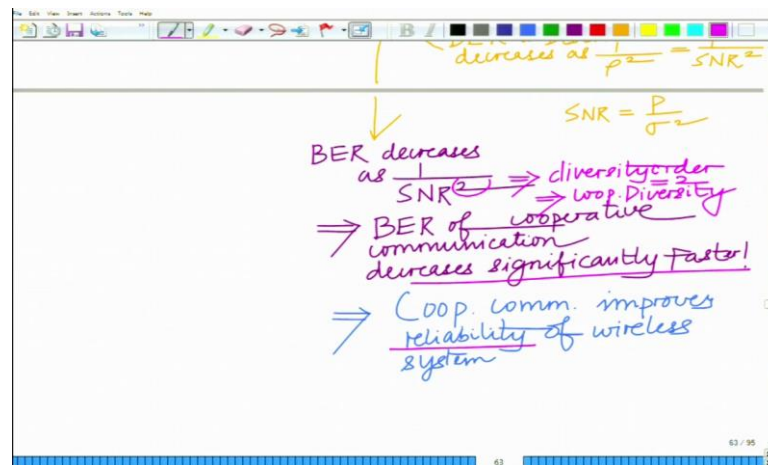 File Edit View Insert Actions Tools Help
B I
decreases as 1/P² = 1/SNR²
SNR = P/σ²
BER decreases
as 1/SNR² ⇒ diversity order = 2
⇒ Coop. Diversity
⇒ BER of cooperative
communication
decreases significantly faster!
⇒ Coop. comm. improves
reliability of wireless
system
63 / 95
63